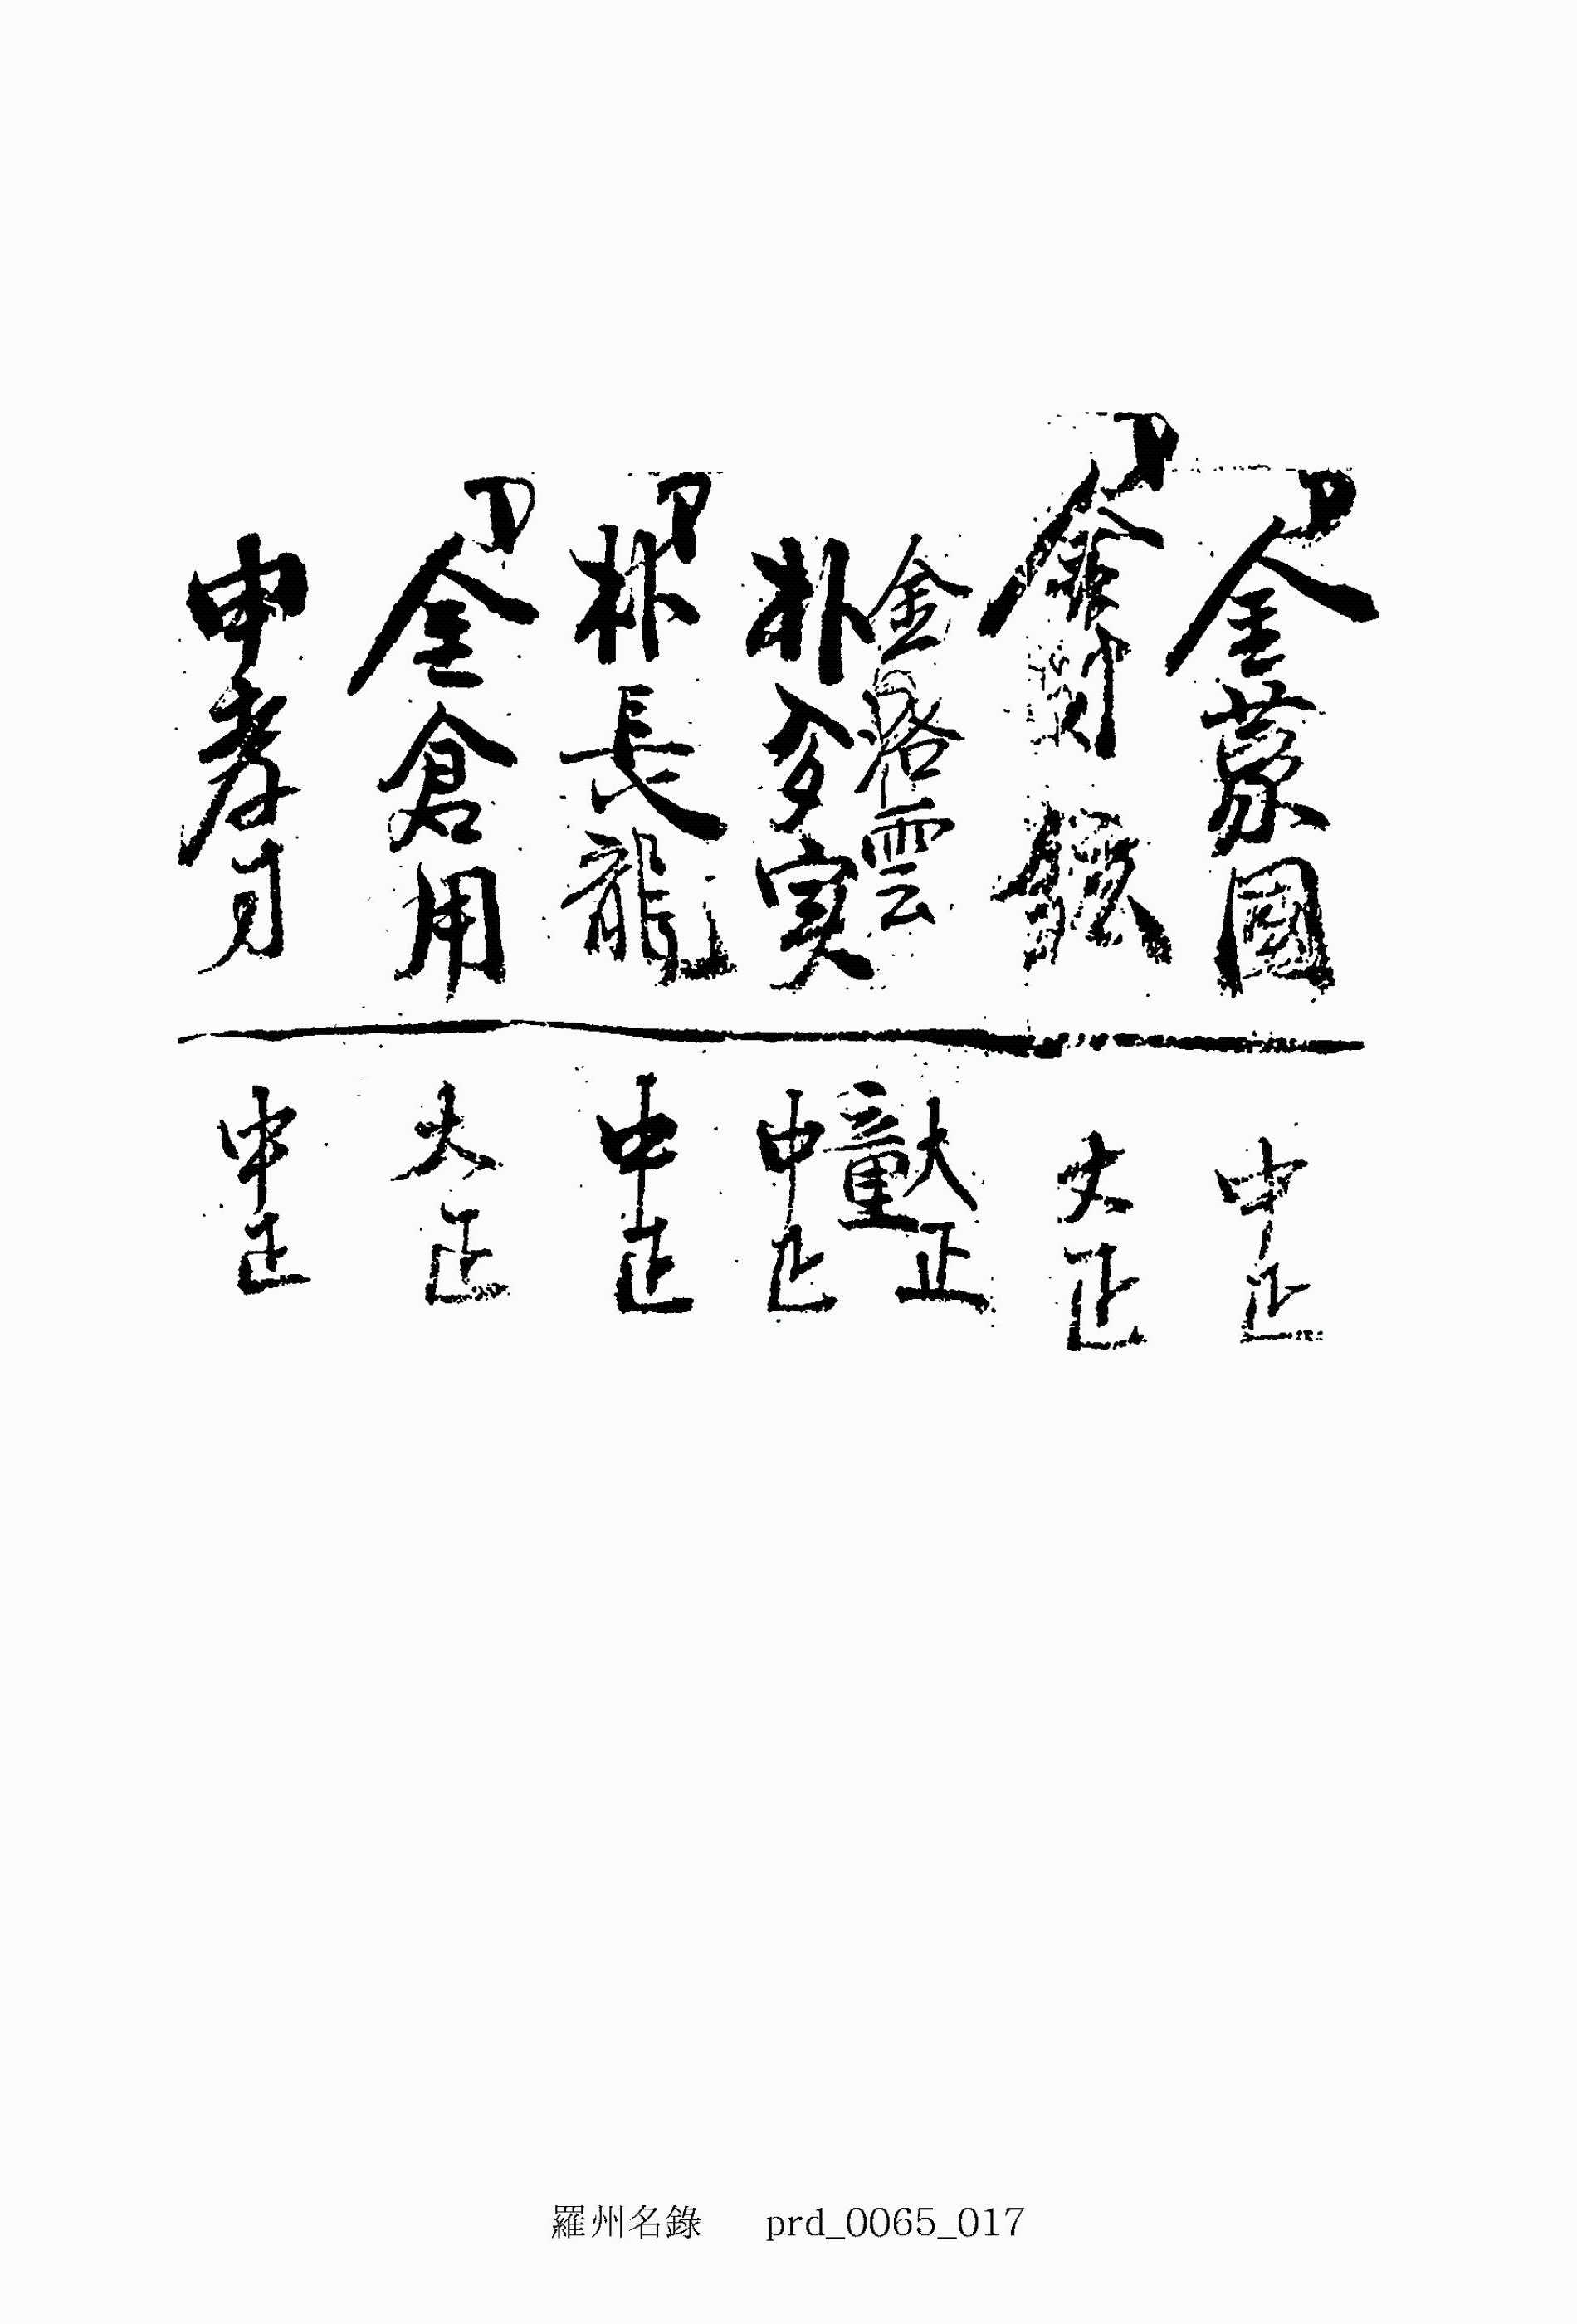 金蒙國
中正
金
大正
金洛雲
大正
童
朴 实
中正
朴長龍
中正
金倉用
大正
申孝月
中正
羅州名錄 prd_0065_017